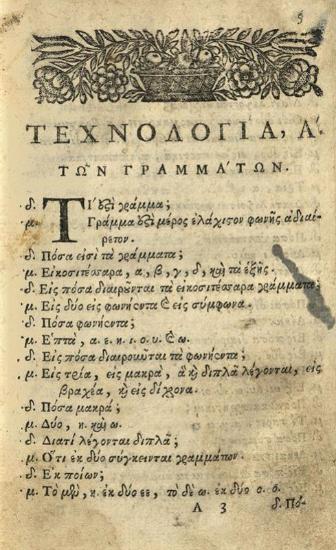 5
ΤΕΧΝΟΛΟΓΙΑ, Α΄.
ΤΩΝ ΓΡΑΜΜΑΤΩΝ.
δ. Τί ἐςι γράμμα;
μ. Γράμμα ἐςι μέρος ἐλάχιςον φωνῆς ἀδιαί-
ρετον.
δ. Πόσα εἰσὶ τὰ γράμματα;
μ. Εἰκοσιτέσσαρα, α, β, γ, δ, καὶ τὰ ἑξῆς.
δ. Εἰς πόσα διαιροῦνται τὰ εἰκοσιτέσσαρα γράμματα;
μ. Εἰς δύο εἰς φωνήεντα καὶ εἰς σύμφωνα.
δ. Πόσα φωνήεντα;
μ. Ἑπτά, α. ε. η. ι. ο. υ. καὶ ω.
δ. Εἰς πόσα διαιροῦνται τὰ φωνήεντα;
μ. Εἰς τρία, εἰς μακρὰ, ἃ καὶ διπλᾶ λέγονται, εἰς
βραχέα, καὶ εἰς δίχρονα.
δ. Πόσα μακρά;
μ. Δύο, η. καὶ ω.
δ. Διατί λέγονται διπλᾶ;
μ. Ὅτι ἐκ δύο σύγκεινται γραμμάτων.
δ. Ἐκ ποίων;
μ. Τὸ μὲν, η. ἐκ δύο εε, τὸ δὲ ω. ἐκ δύο ο. ο.
Α 3 δ. Πό-